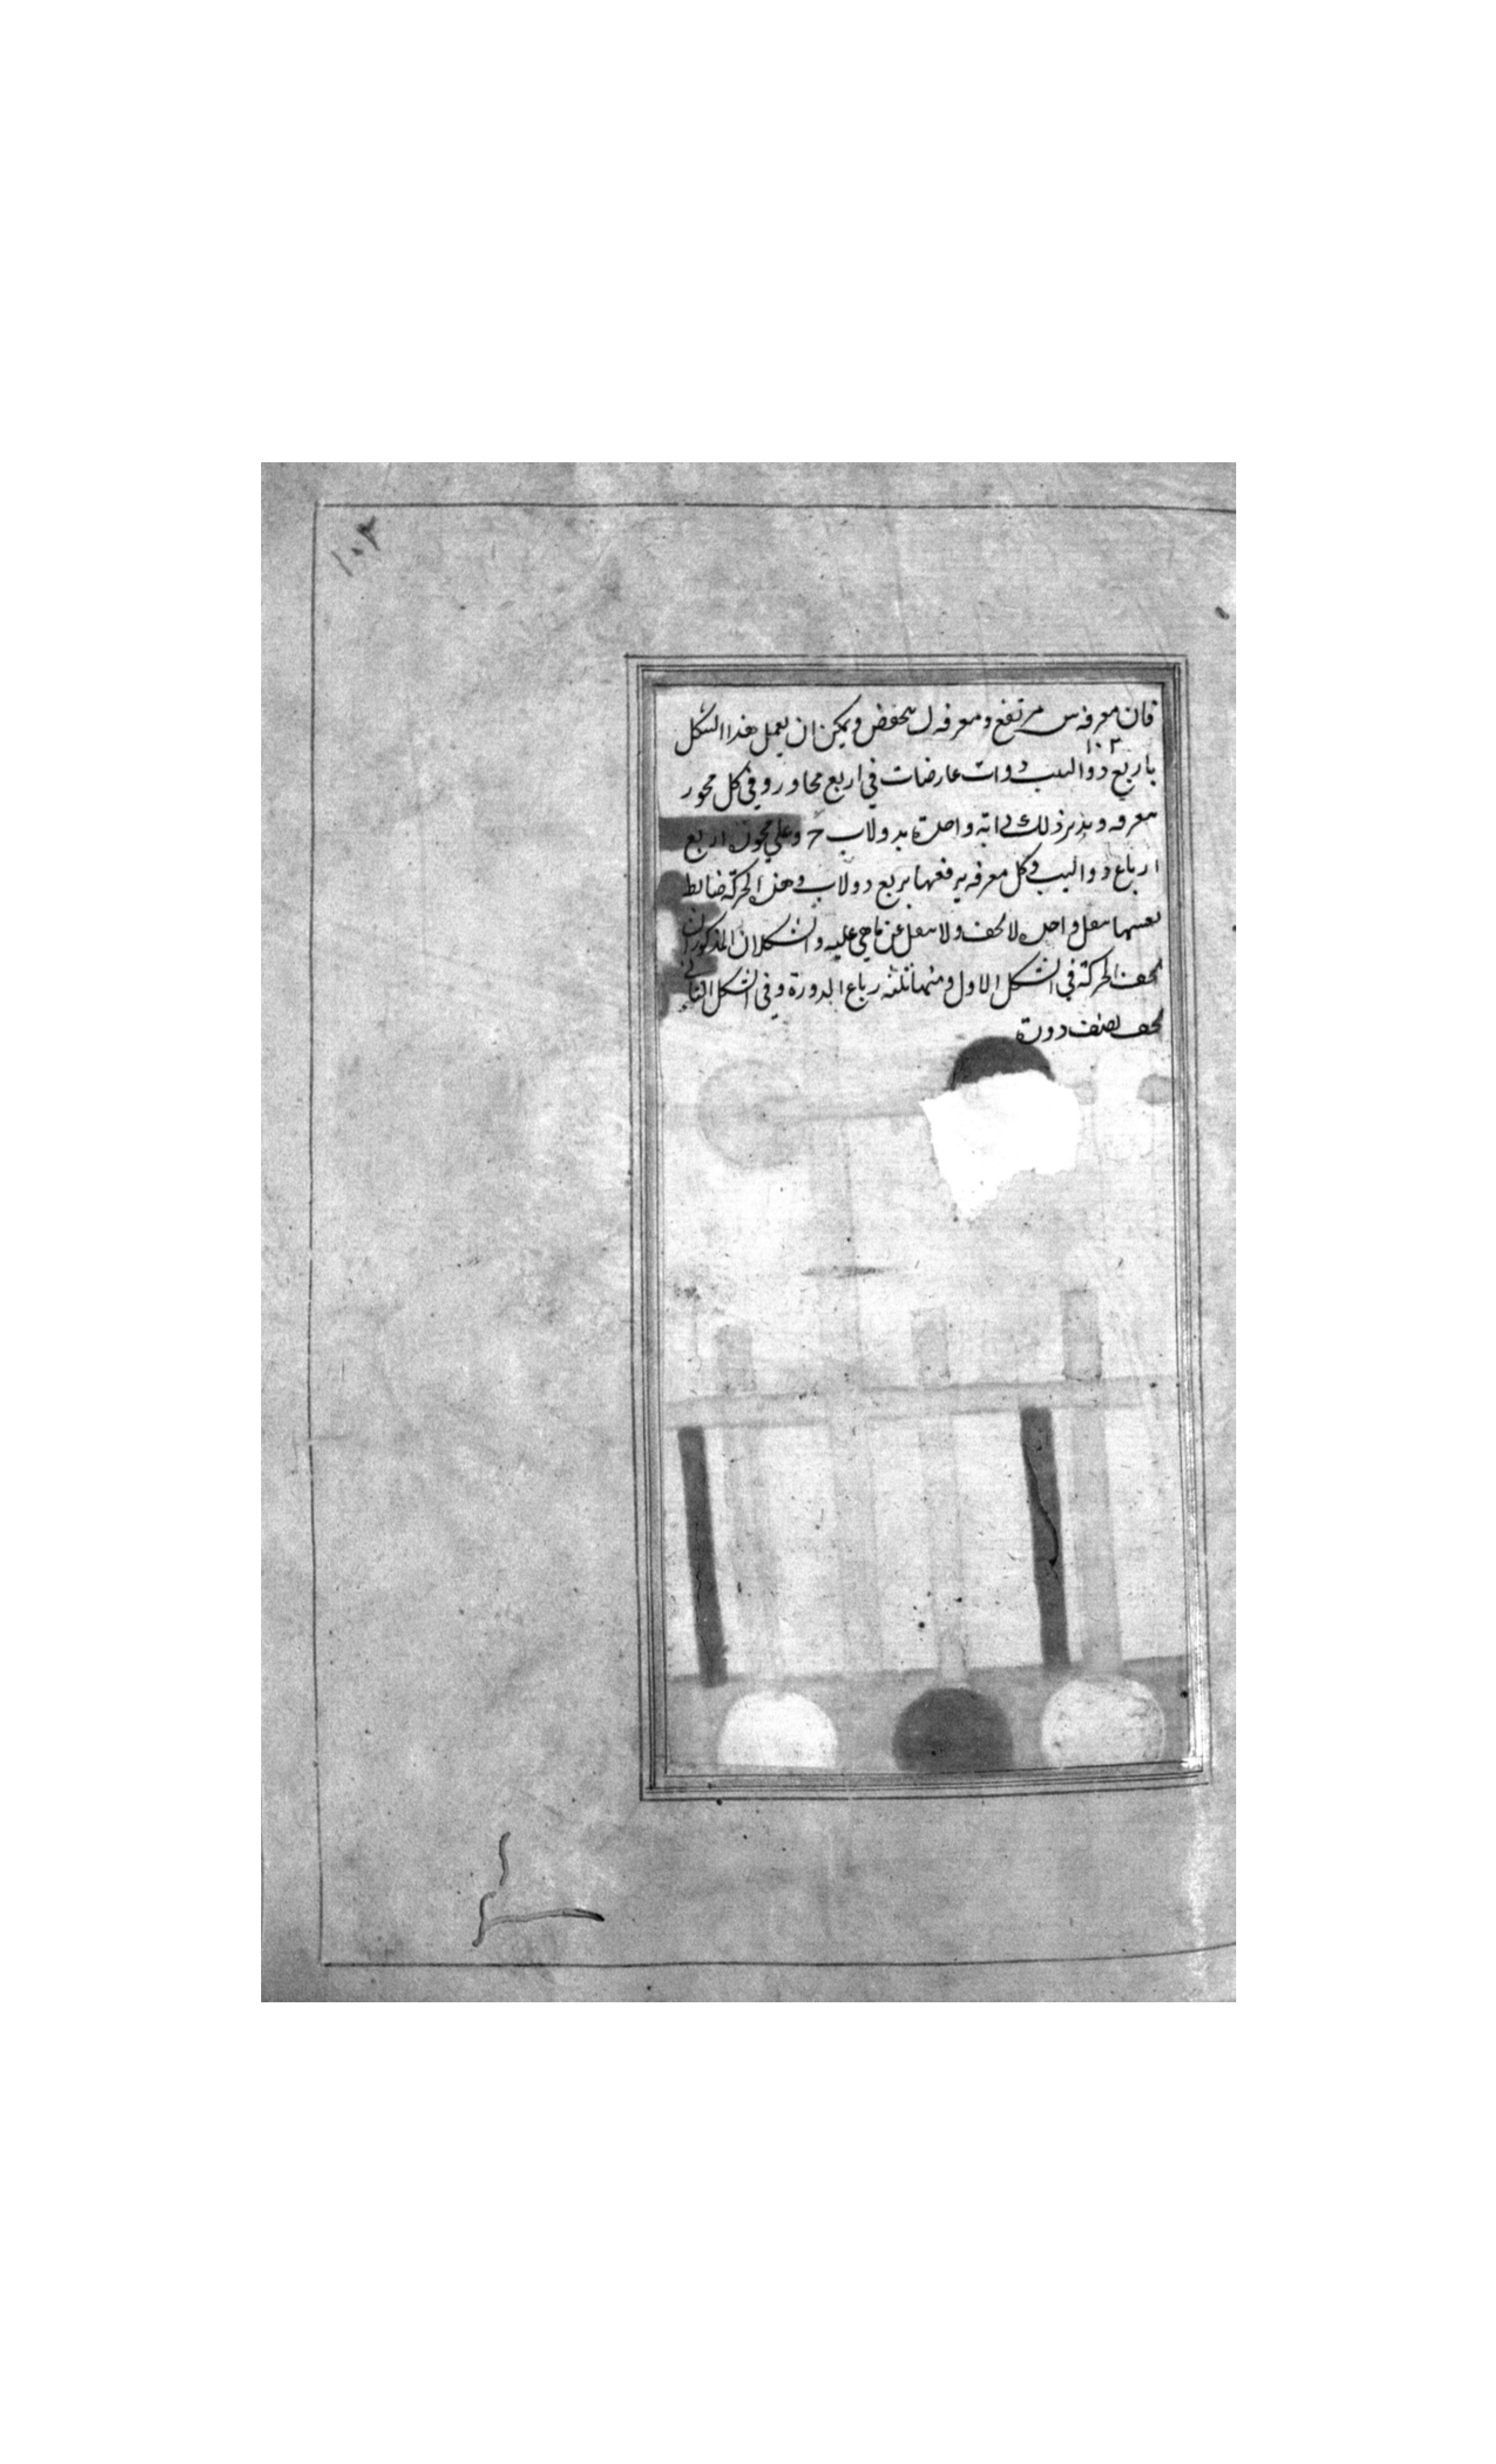 ١٠٣
فان معرفه س مرتفع ومعرفه ل منخفض ويمكن ان يعمل هذا الشكل
١٠٣
باربع دواليب دوات عارضات في اربع محاور وفي كل محور
معرفه ويدير ذلك دابة واحدة بدولاب ح وعلي محوره اربع
ارباع دواليب وكل معرفه يرفعها بربع دولاب وهذه الحركة ضابط
نفسها ثقل واحد لا تخف ولا تثقل عن ماهي عليه والشكلان المذكوران
تخف الحركة في الشكل الاول ومنها ثلثه رباع الدورة وفي الشكل الثاني
تخف نصف دورة